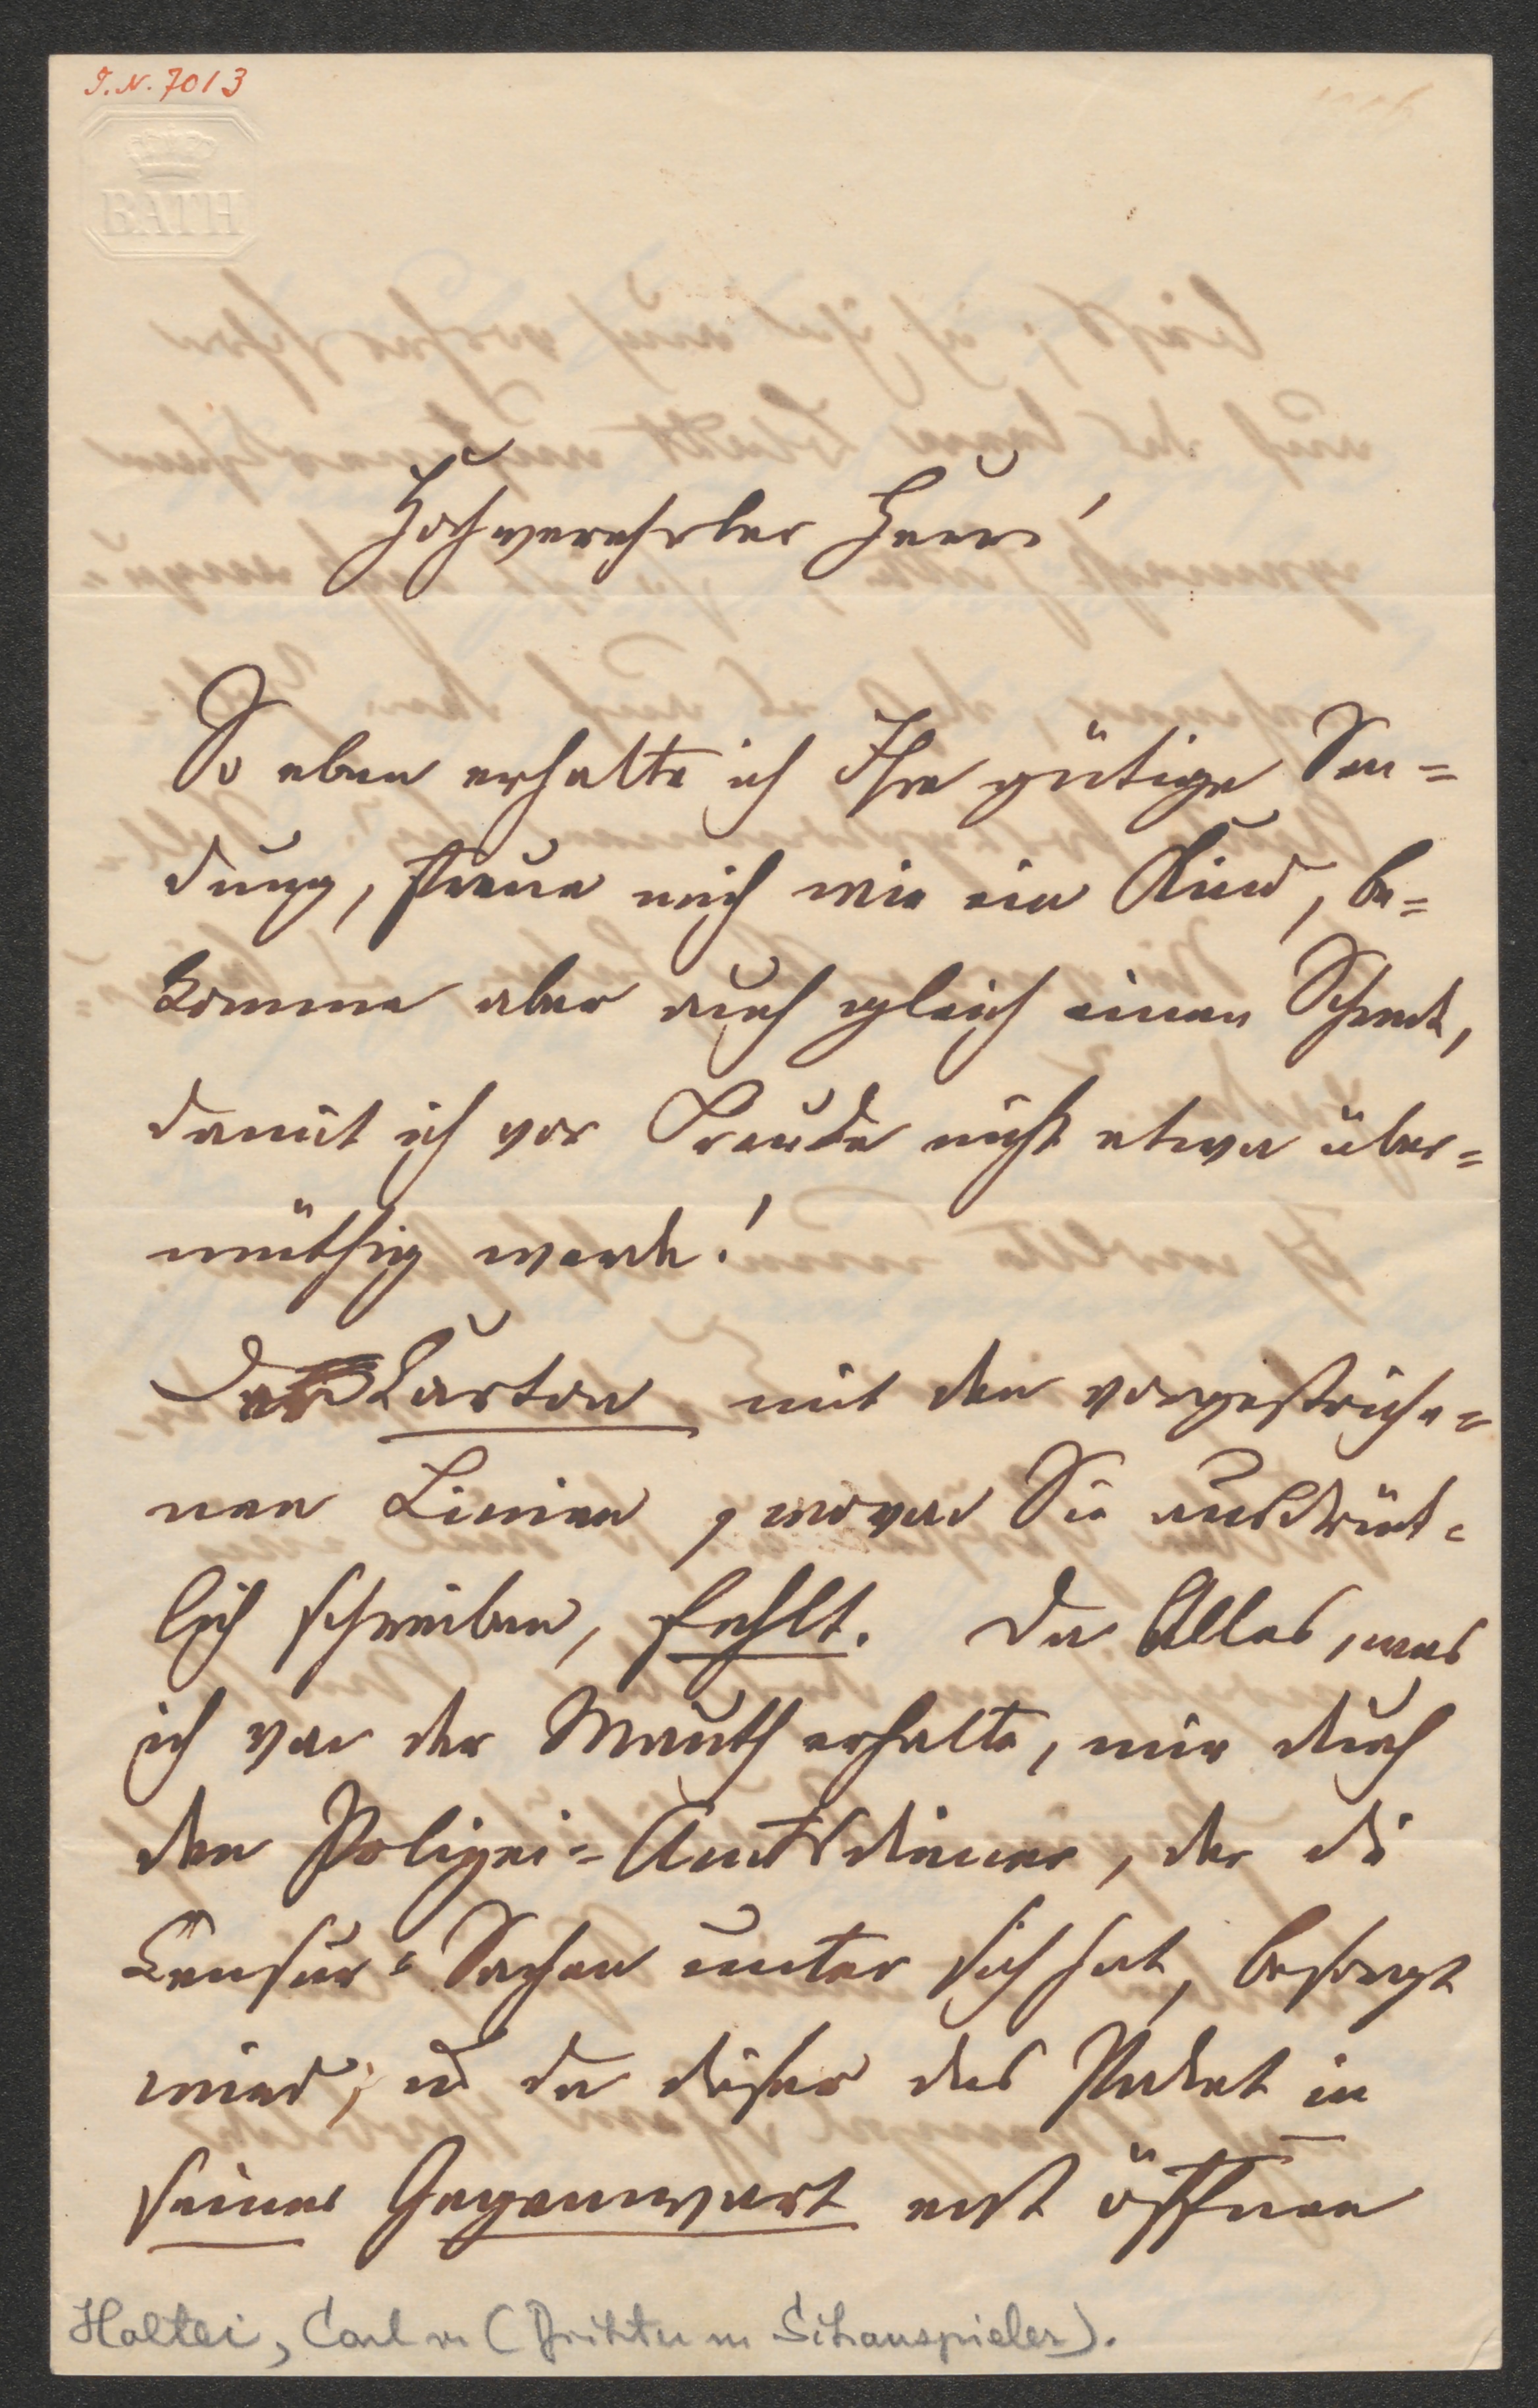 I.N. 7013
BATH
Hochverehrter Herr!
So eben erhalte ich Ihre gütige Sen=
dung, freue mich wie ein Kind, be=
komme aber auch gleich einen Schreck,
damit ich vor Freude nicht etwa über=
müthig werde!
Der Carton mit den vorgestriche=
nen Linien, wovon Sie ausdrück=
lich schreiben, fehlt. Da Alles, was
ich von der Mauth erhalte, mir durch
den Polizei=Amtsdiener, der die
Censur=Sachen unter sich hat, besorgt
wird; u da dieser das Packet in
seiner Gegenwart erst öffnen
Holtei, Carl v. (Dichter u. Schauspieler).